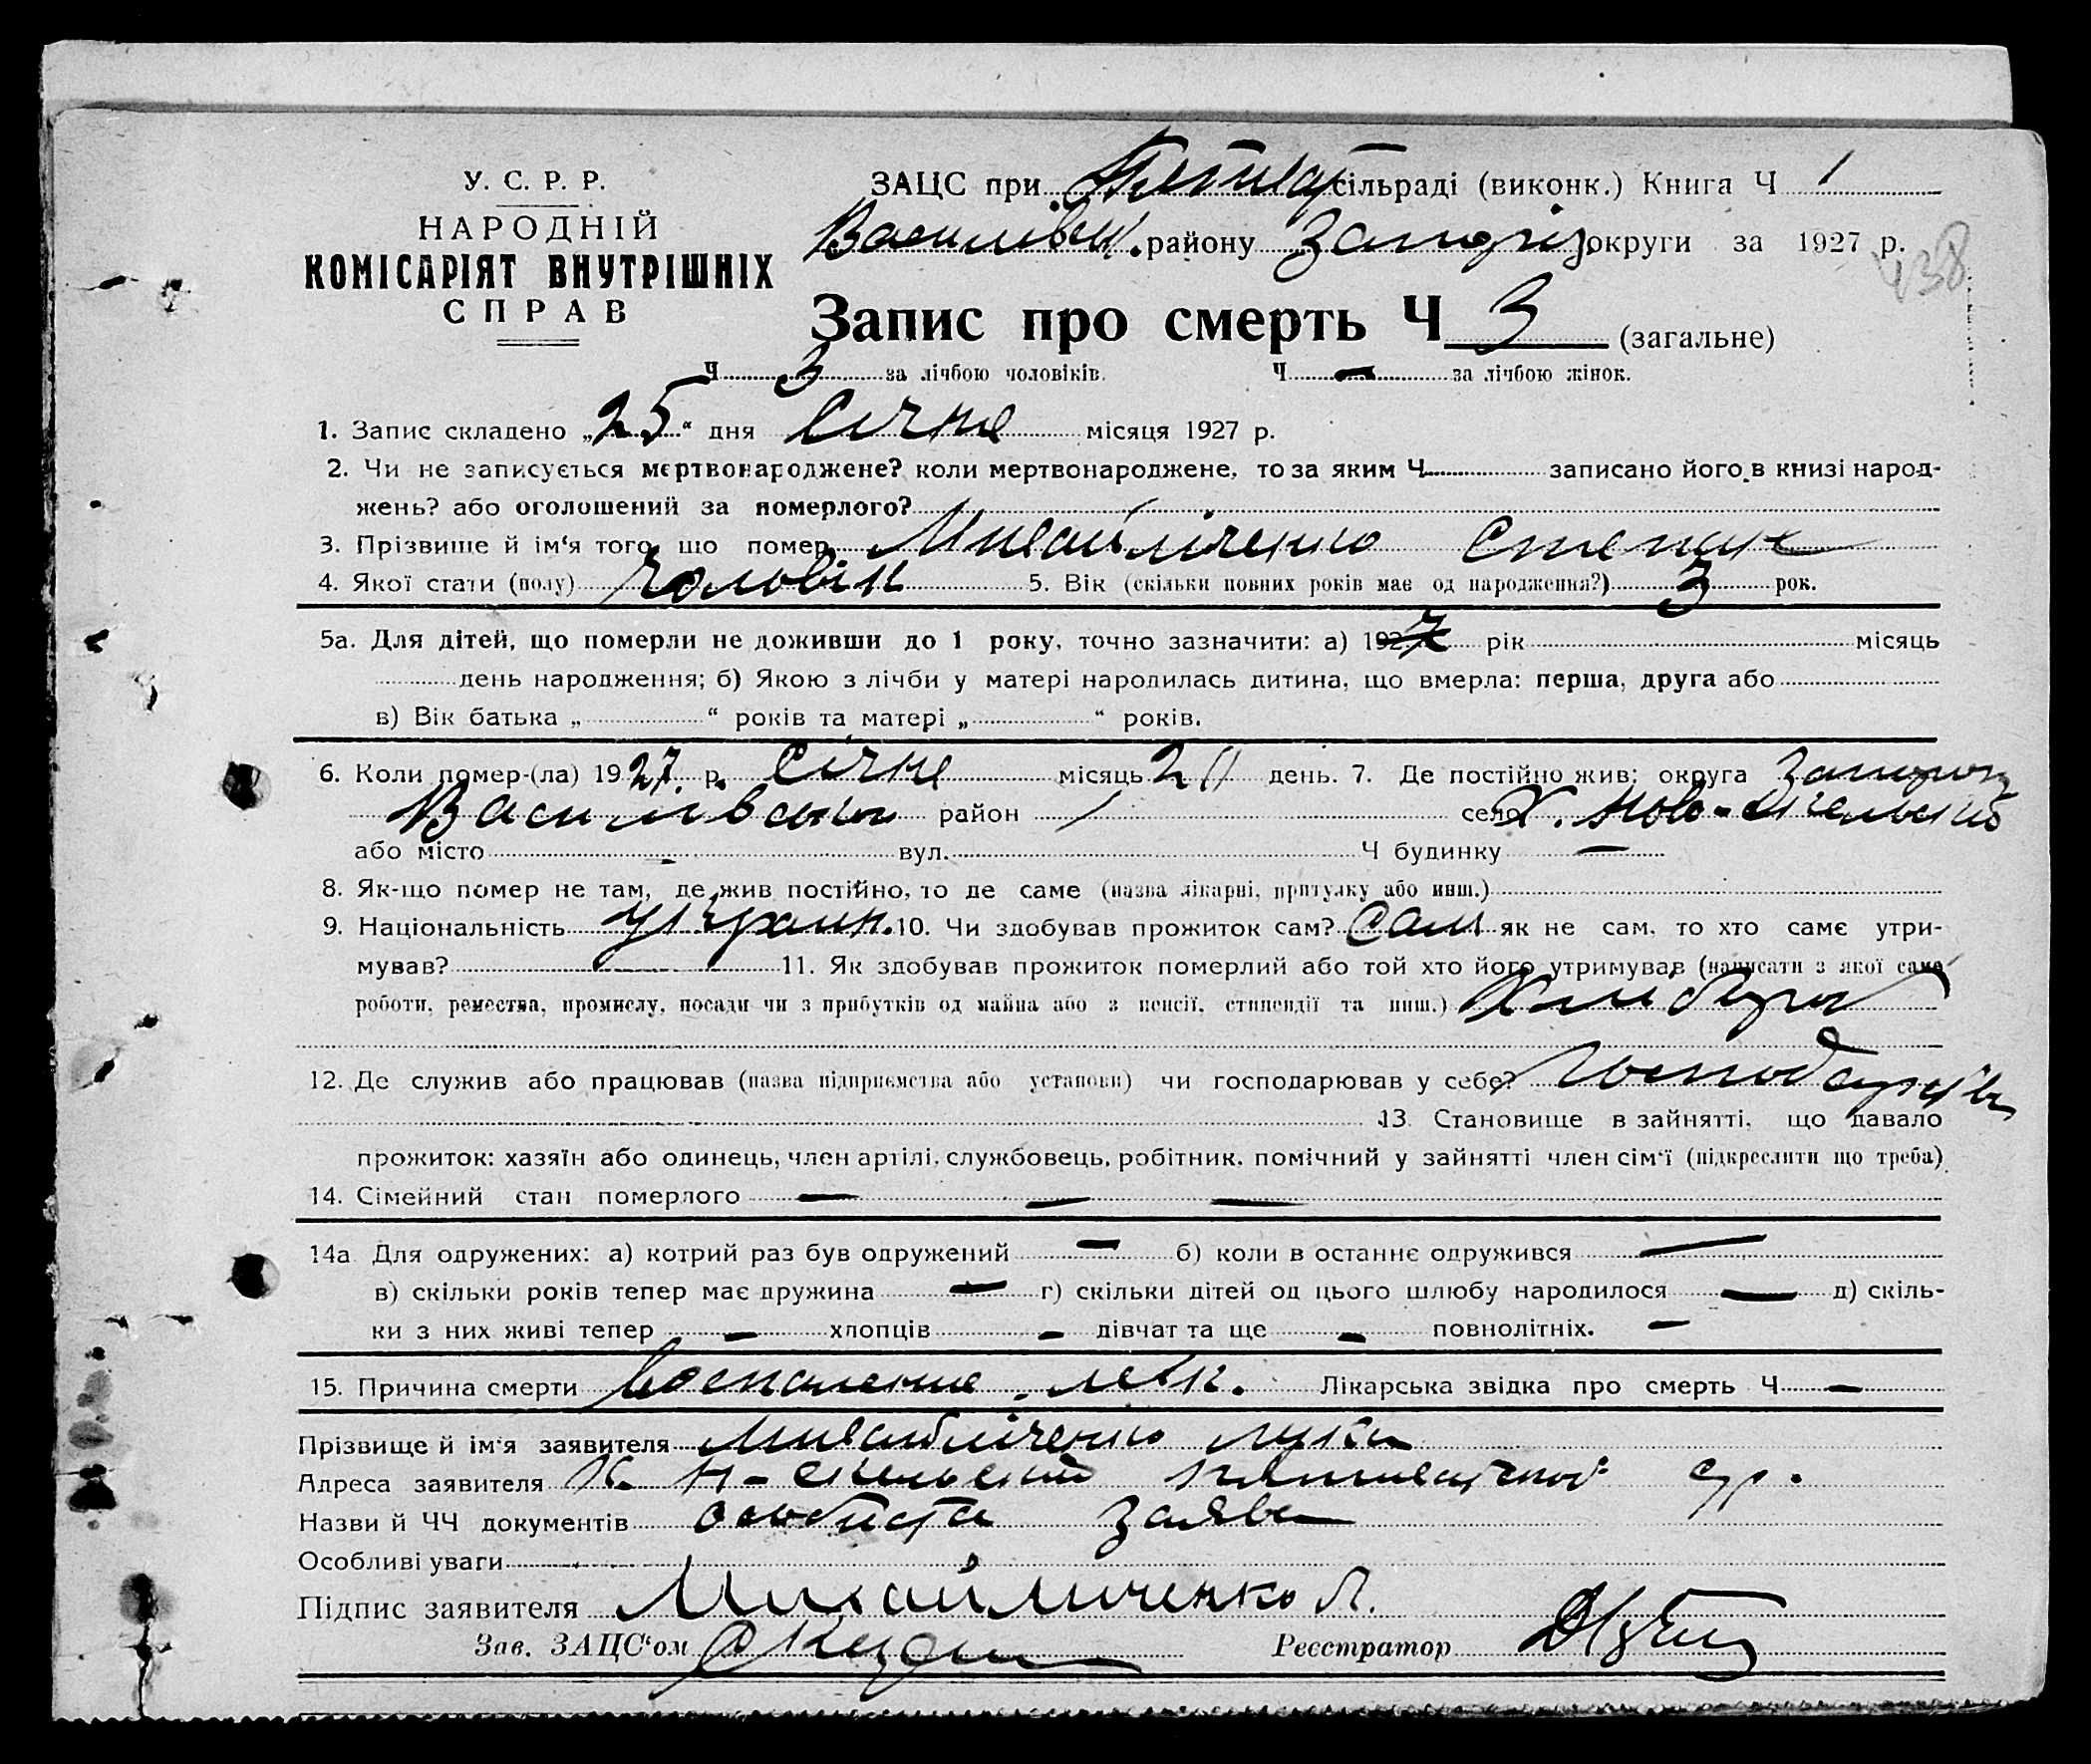 У. С. Р. Р.
НАРОДНІЙ
КОМІСАРІЯТ ВНУТРІШНІХ
СПРАВ
ЗАЦС при сільраді (виконк.) Книга Ч 1
Василівськ. району Запоріз. округи за 1927 р.
438
Запис про смерть Ч 3 (загальне)
Ч 3 за лічбою чоловіків. Ч — за лічбою жінок.
1. Запис складено „25“ дня Січня місяця 1927 р.
2. Чи не записується мертвонароджене? коли мертвонароджене, то за яким Ч записано його в книзі народ-
жень? або оголошений за померлого?
3. Прізвище й ім‘я того, що помер Михайліченко Степан
4. Якої стати (полу) Чоловік 5. Вік (скільки повних років має од народження?) 3 рок.
5а. Для дітей, що померли не доживши до 1 року, точно зазначити: а) 1927 рік місяць
день народження; б) Якою з лічби у матері народилась дитина, що вмерла: перша, друга або
в) Вік батька „ “ років та матері „ “ років.
6. Коли помер-(ла) 1927 р. Січня місяць день. 7. Де постійно жив: округа Запоріз
Василівський район / село Х. Ново-
або місто — вул. Ч будинку —
8. Як-що помер не там, де жив постійно, то де саме (назва лікарні, притулку або инш.)
9. Національність Україн. 10. Чи здобував прожиток сам? Сам як не сам, то хто саме утри-
мував? — 11. Як здобував прожиток померлий або той хто його утримував (написати з якої саме
роботи, ремества, промислу, посади чи з прибутків од майна або з пенсії, стипендії та инш.) Хлібороб
12. Де служив або працював (назва підприємства або установи) чи господарював у себе?
13. Становище в зайнятті, що давало
прожиток: хазяїн або одинець, член артілі, службовець, робітник, помічний у зайнятті член сім‘ї (підкреслити що треба)
14. Сімейний стан померлого — — —
14а Для одружених: а) котрий раз був одружений — б) коли в останнє одружився —
в) скільки років тепер має дружина — г) скільки дітей од цього шлюбу народилося — д) скіль-
ки з них живі тепер — хлопців — дівчат та ще — повнолітніх. —
15. Причина смерти Воспаление легк. Лікарська звідка про смерть Ч —
Прізвище й ім‘я заявителя Михайліченко Лука
Адреса заявителя Х. Н- с/р.
Назви й ЧЧ документів особиста заява
Особливі уваги
Підпис заявителя Михайличенко Л.
Зав. ЗАЦС‘ом
Реєстратор